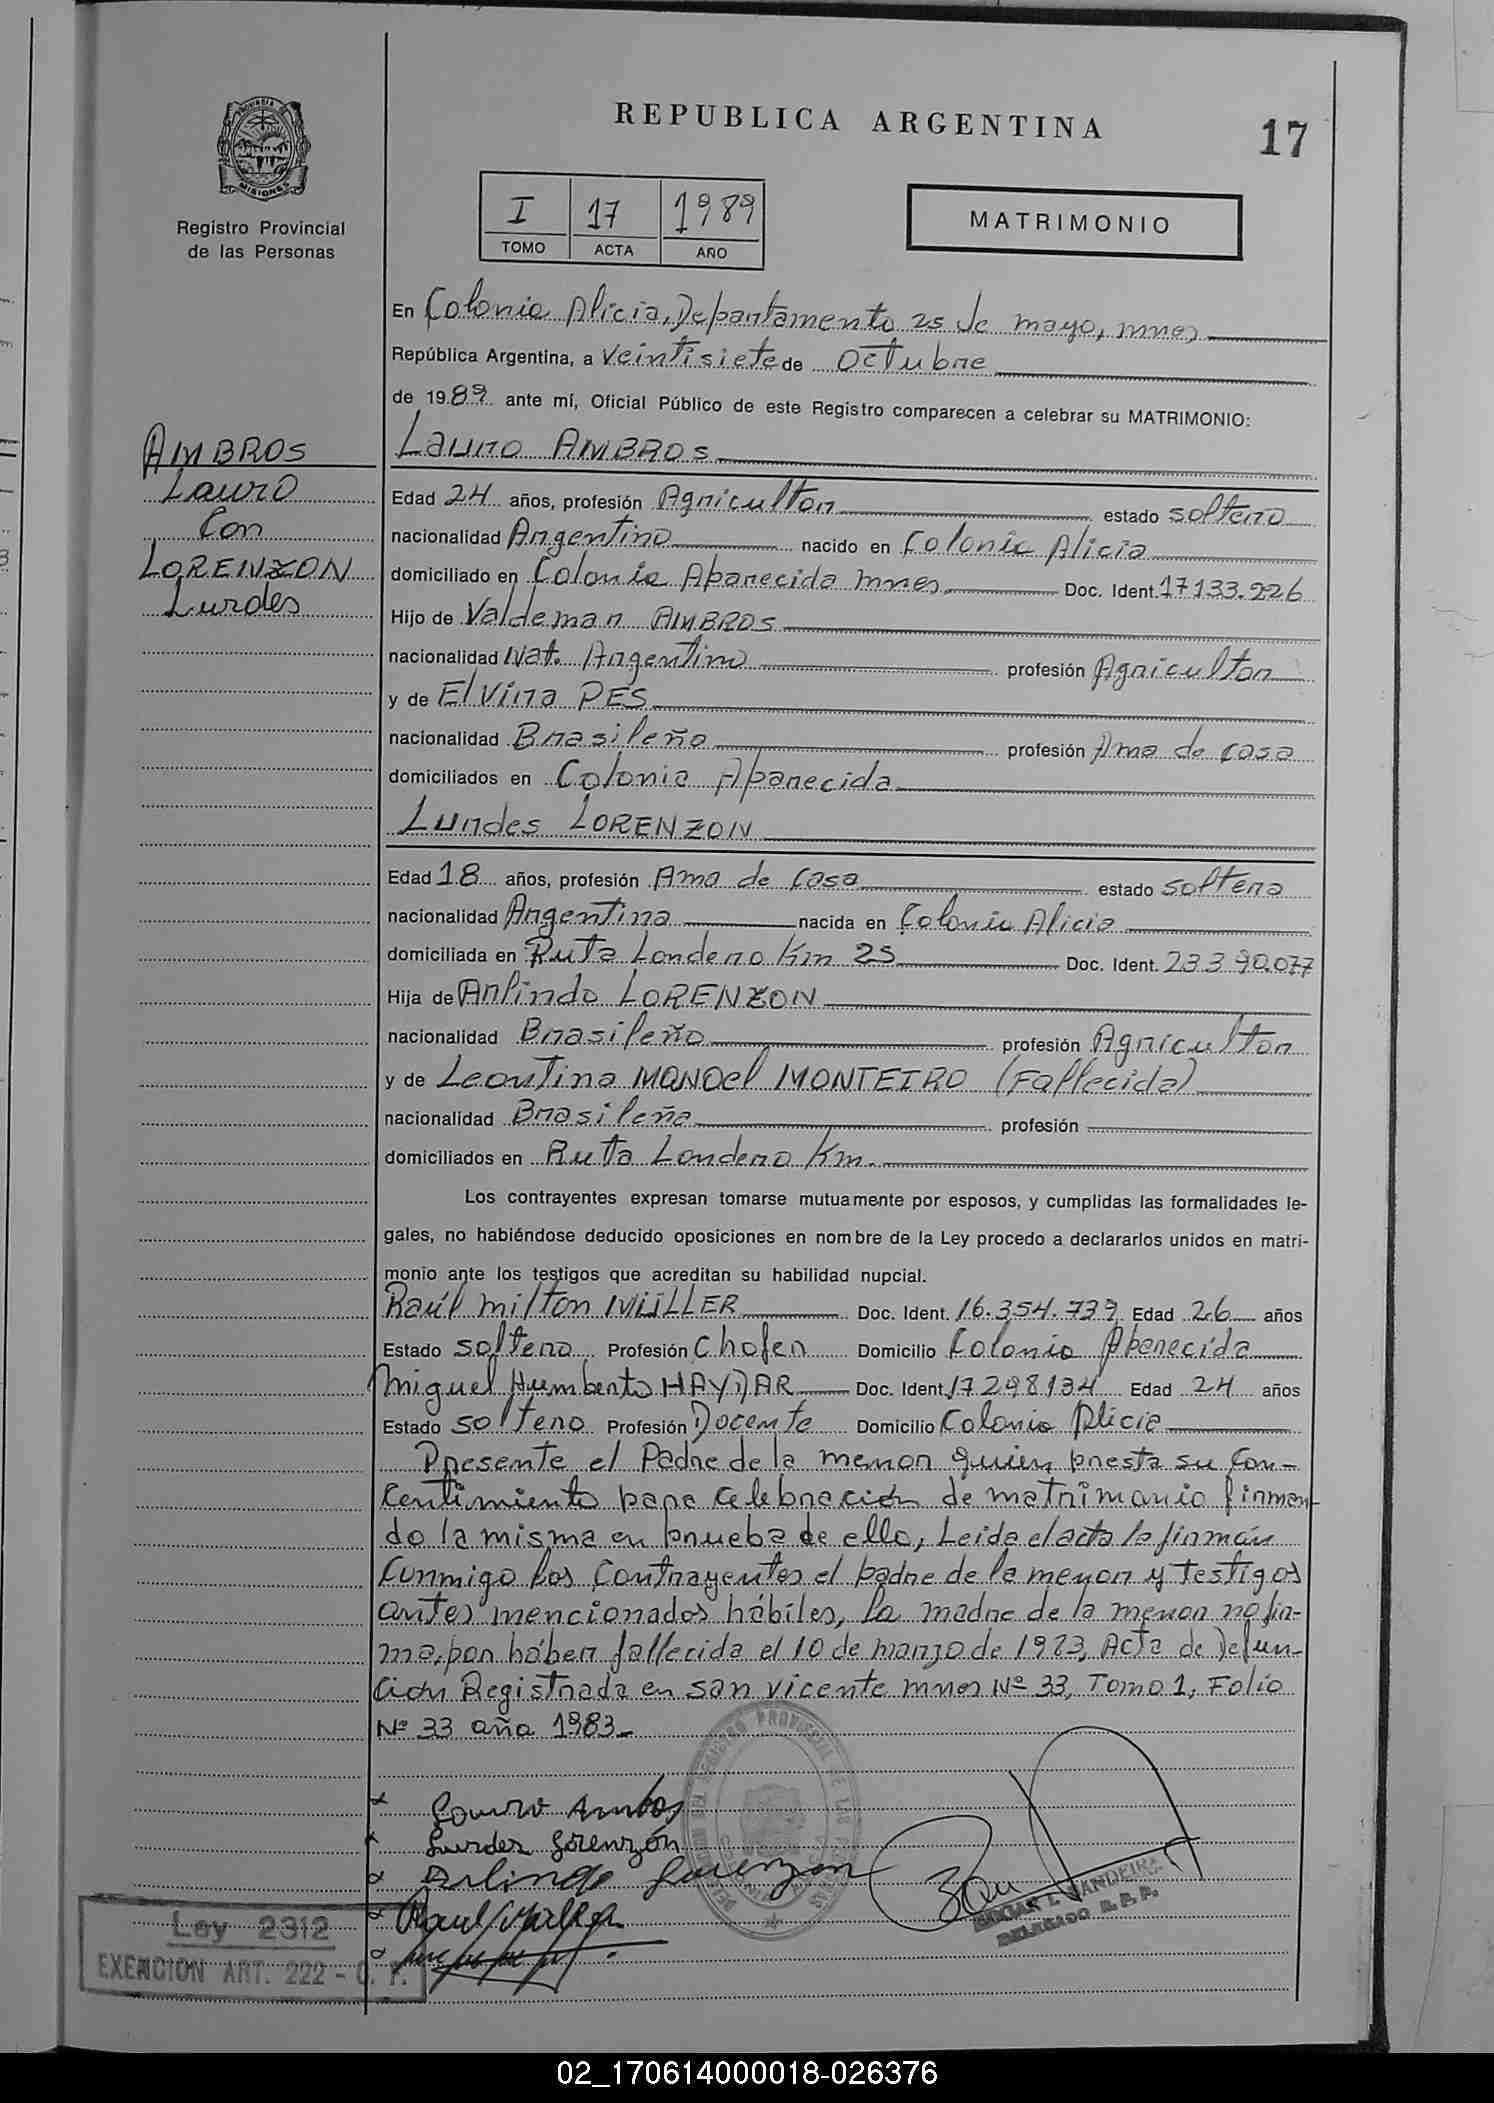 REPUBLICA ARGENTINA
17
PROVINCIA DE
MISIONES
Registro Provincial
de las Personas
I 17 1989
TOMO ACTA AÑO
MATRIMONIO
En Colonia Alicia, Departamento 25 de mayo, mnes,
República Argentina, a Veintisiete de Octubre
de 1989 ante mí, Oficial Público de este Registro comparecen a celebrar su MATRIMONIO:
AMBROS
Lauro
Con
LORENZON
Lurdes
Lauro AMBROS
Edad 24 años, profesión Agricultor estado soltero
nacionalidad Argentino nacido en Colonia Alicia
domiciliado en Colonia Aparecida mnes, Doc. Ident. 17133.226
Hijo de Valdemar AMBROS
nacionalidad Nat. Argentino profesión Agricultor
y de Elvira PES
nacionalidad Brasileño profesión Ama de casa
domiciliados en Colonia Aparecida
Lurdes LORENZON
Edad 18 años, profesión Ama de casa estado soltera
nacionalidad Argentina nacida en Colonia Alicia
domiciliada en Ruta Londero Km 25 Doc. Ident. 23390.077
Hija de Arlindo LORENZON
nacionalidad Brasileño profesión Agricultor
y de Leontina MANOel MONTEIRO (Fallecida)
nacionalidad Brasileña profesión
domiciliados en Ruta Londero Km.
Los contrayentes expresan tomarse mutuamente por esposos, y cumplidas las formalidades le-
gales, no habiéndose deducido oposiciones en nombre de la Ley procedo a declararlos unidos en matri-
monio ante los testigos que acreditan su habilidad nupcial.
Raúl milton MÜLLER Doc. Ident. 16.354.739 Edad 26 años
Estado soltero Profesión Chofer Domicilio Colonia Aparecida
Miguel Humberto HAYDAR Doc. Ident. 17298134 Edad 24 años
Estado soltero Profesión Docente Domicilio Colonia Alicia
Presente el Padre de la menor quien presta su Con-
centimiento para celebración de matrimonio firman-
do la misma en prueba de ello, Leida el acta la firmán
Conmigo los Contrayentes el padre de la menor y testigos
antes mencionados hábiles, la madre de la menor no fir-
ma, por háber fallecida el 10 de marzo de 1983, Acta de Defun-
ción Registrada en san vicente mnes Nº 33, Tomo 1, Folio
Nº 33 año 1983-
Lauro Ambos
Lurdes Lorenzón
Arlindo Lorenzon
Raul Müller
DELEGADO R. P. P.
Ley 2312
EXENCION ART. 222 - C. F.
02_170614000018-026376